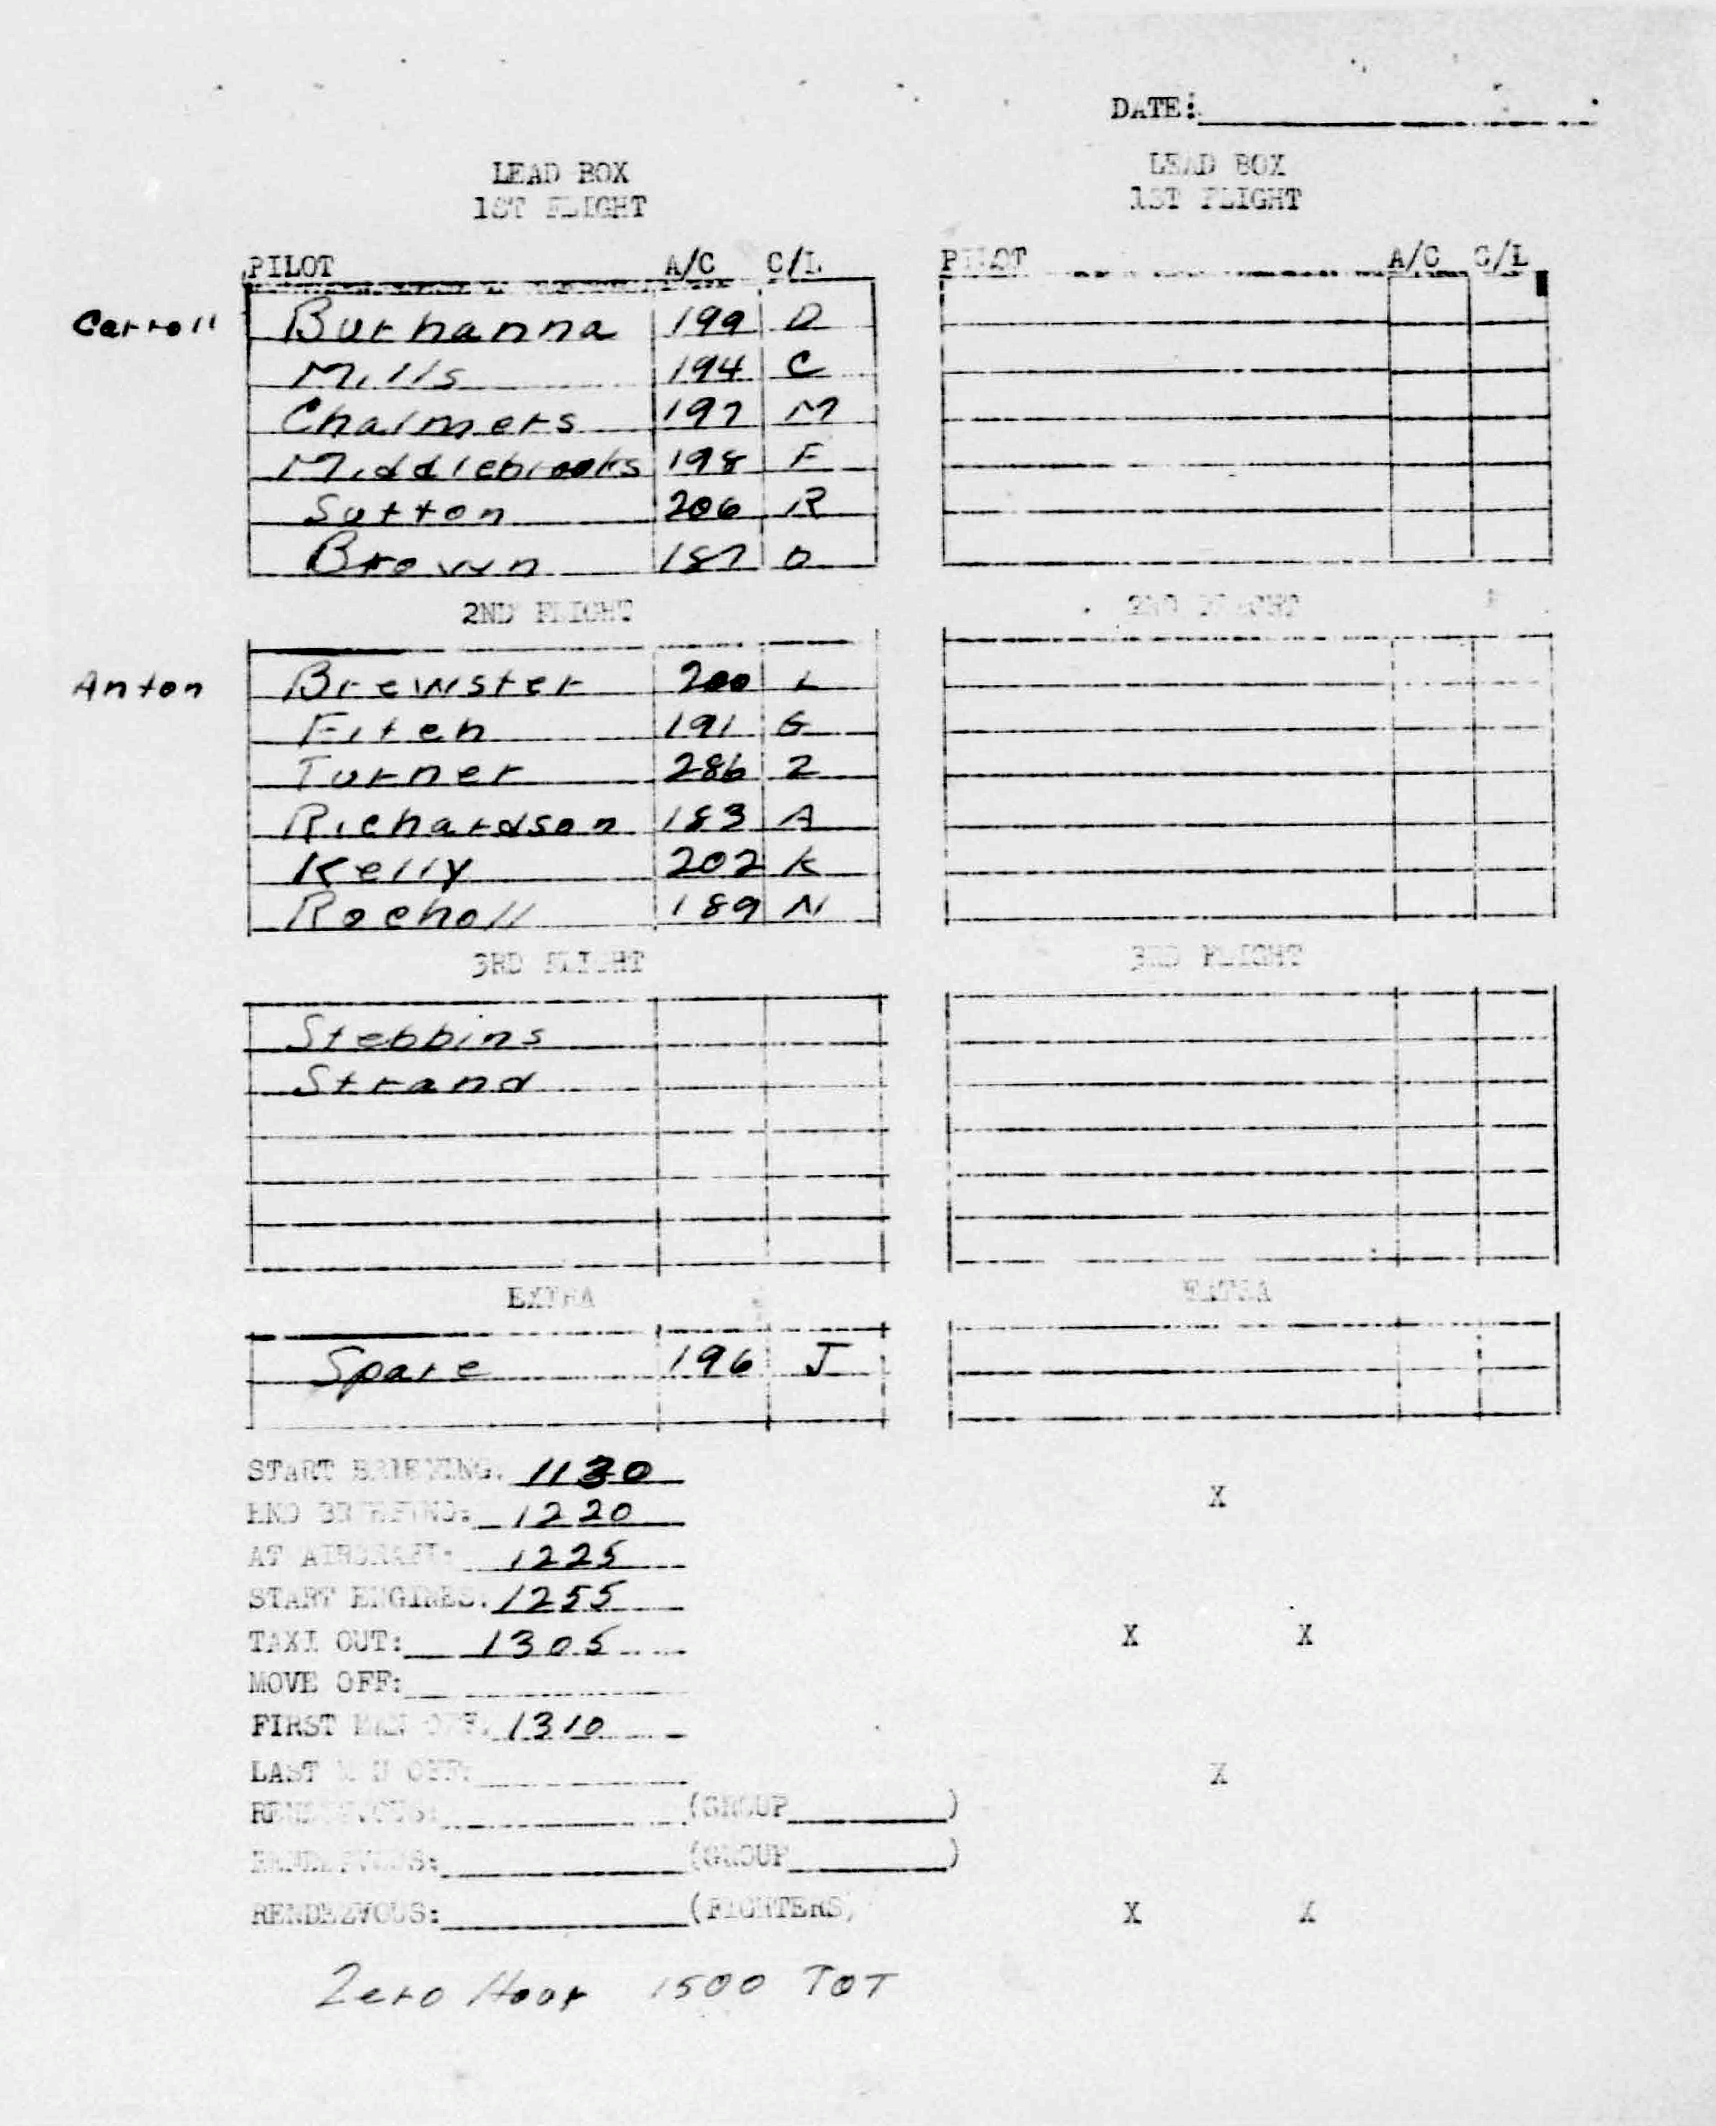 DATE:
LEAD BOX
1ST FLIGHT
PILOT A/C C/L
Carroll Burhanna 199 D
Mills 194 C
Chalmers 197 M
Middlebrooks 198 F
Sutton 206 R
Brown 187 O
2ND FLIGHT
Anton Brewster 200 L
Fiten 191 G
Turner 286 Z
Richardson 183 A
Kelly 202 K
Rocholl 189 N
3RD FLIGHT
Stebbins
Strand
EXTRA
Spare 196 J
LEAD BOX
1ST FLIGHT
PILOT A/C C/L
2ND FLIGHT
3RD FLIGHT
EXTRA
START BRIEFING: 1130
END BRIEFING: 1220
AT AIRCRAFT: 1225
START ENGINES: 1255
TAXI OUT: 1305
MOVE OFF:
FIRST MAN OFF: 1310
LAST MAN OFF:
RENDEZVOUS: (GROUP )
RENDEZVOUS: (GROUP )
RENDEZVOUS: (FIGHTERS)
X
X X
X
X X
Zero Hour 1500 TOT